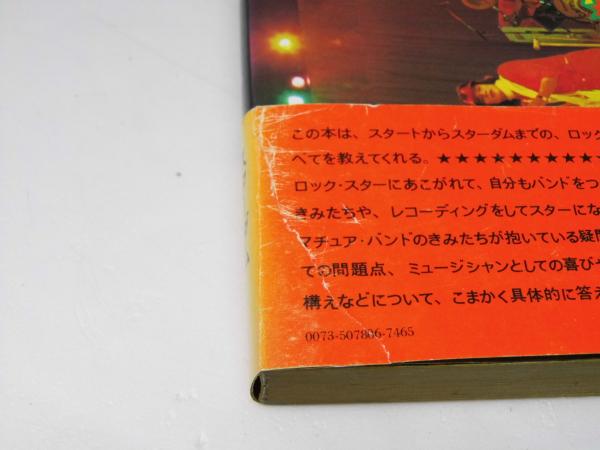 この本は、スタートからスターダムまでの、ロック
べてを教えてくれる。★★★★★★★★★★★
ロック・スターにあこがれて、自分もバンドをつ
きみたちや、レコーディングをしてスターにな
マチュア・バンドのきみたちが抱いている疑問
ての問題点、ミュージシャンとしての喜びや
構えなどについて、こまかく具体的に答え
0073-507886-7465